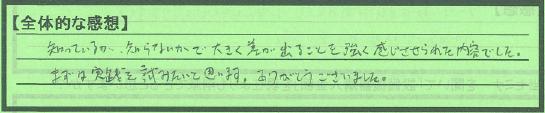 【全体的な感想】
知っているか、知らないかで大きく差が出ることを強く感じさせられた内容でした。
まずは実践を試みたいと思います。ありがとうございました。